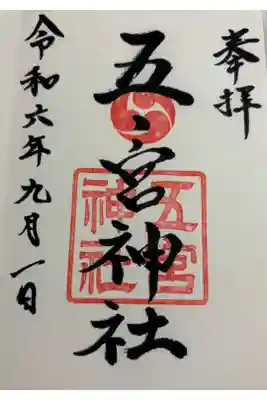 奉拝
五、宮神社
五宮神社
令和六年九月一日